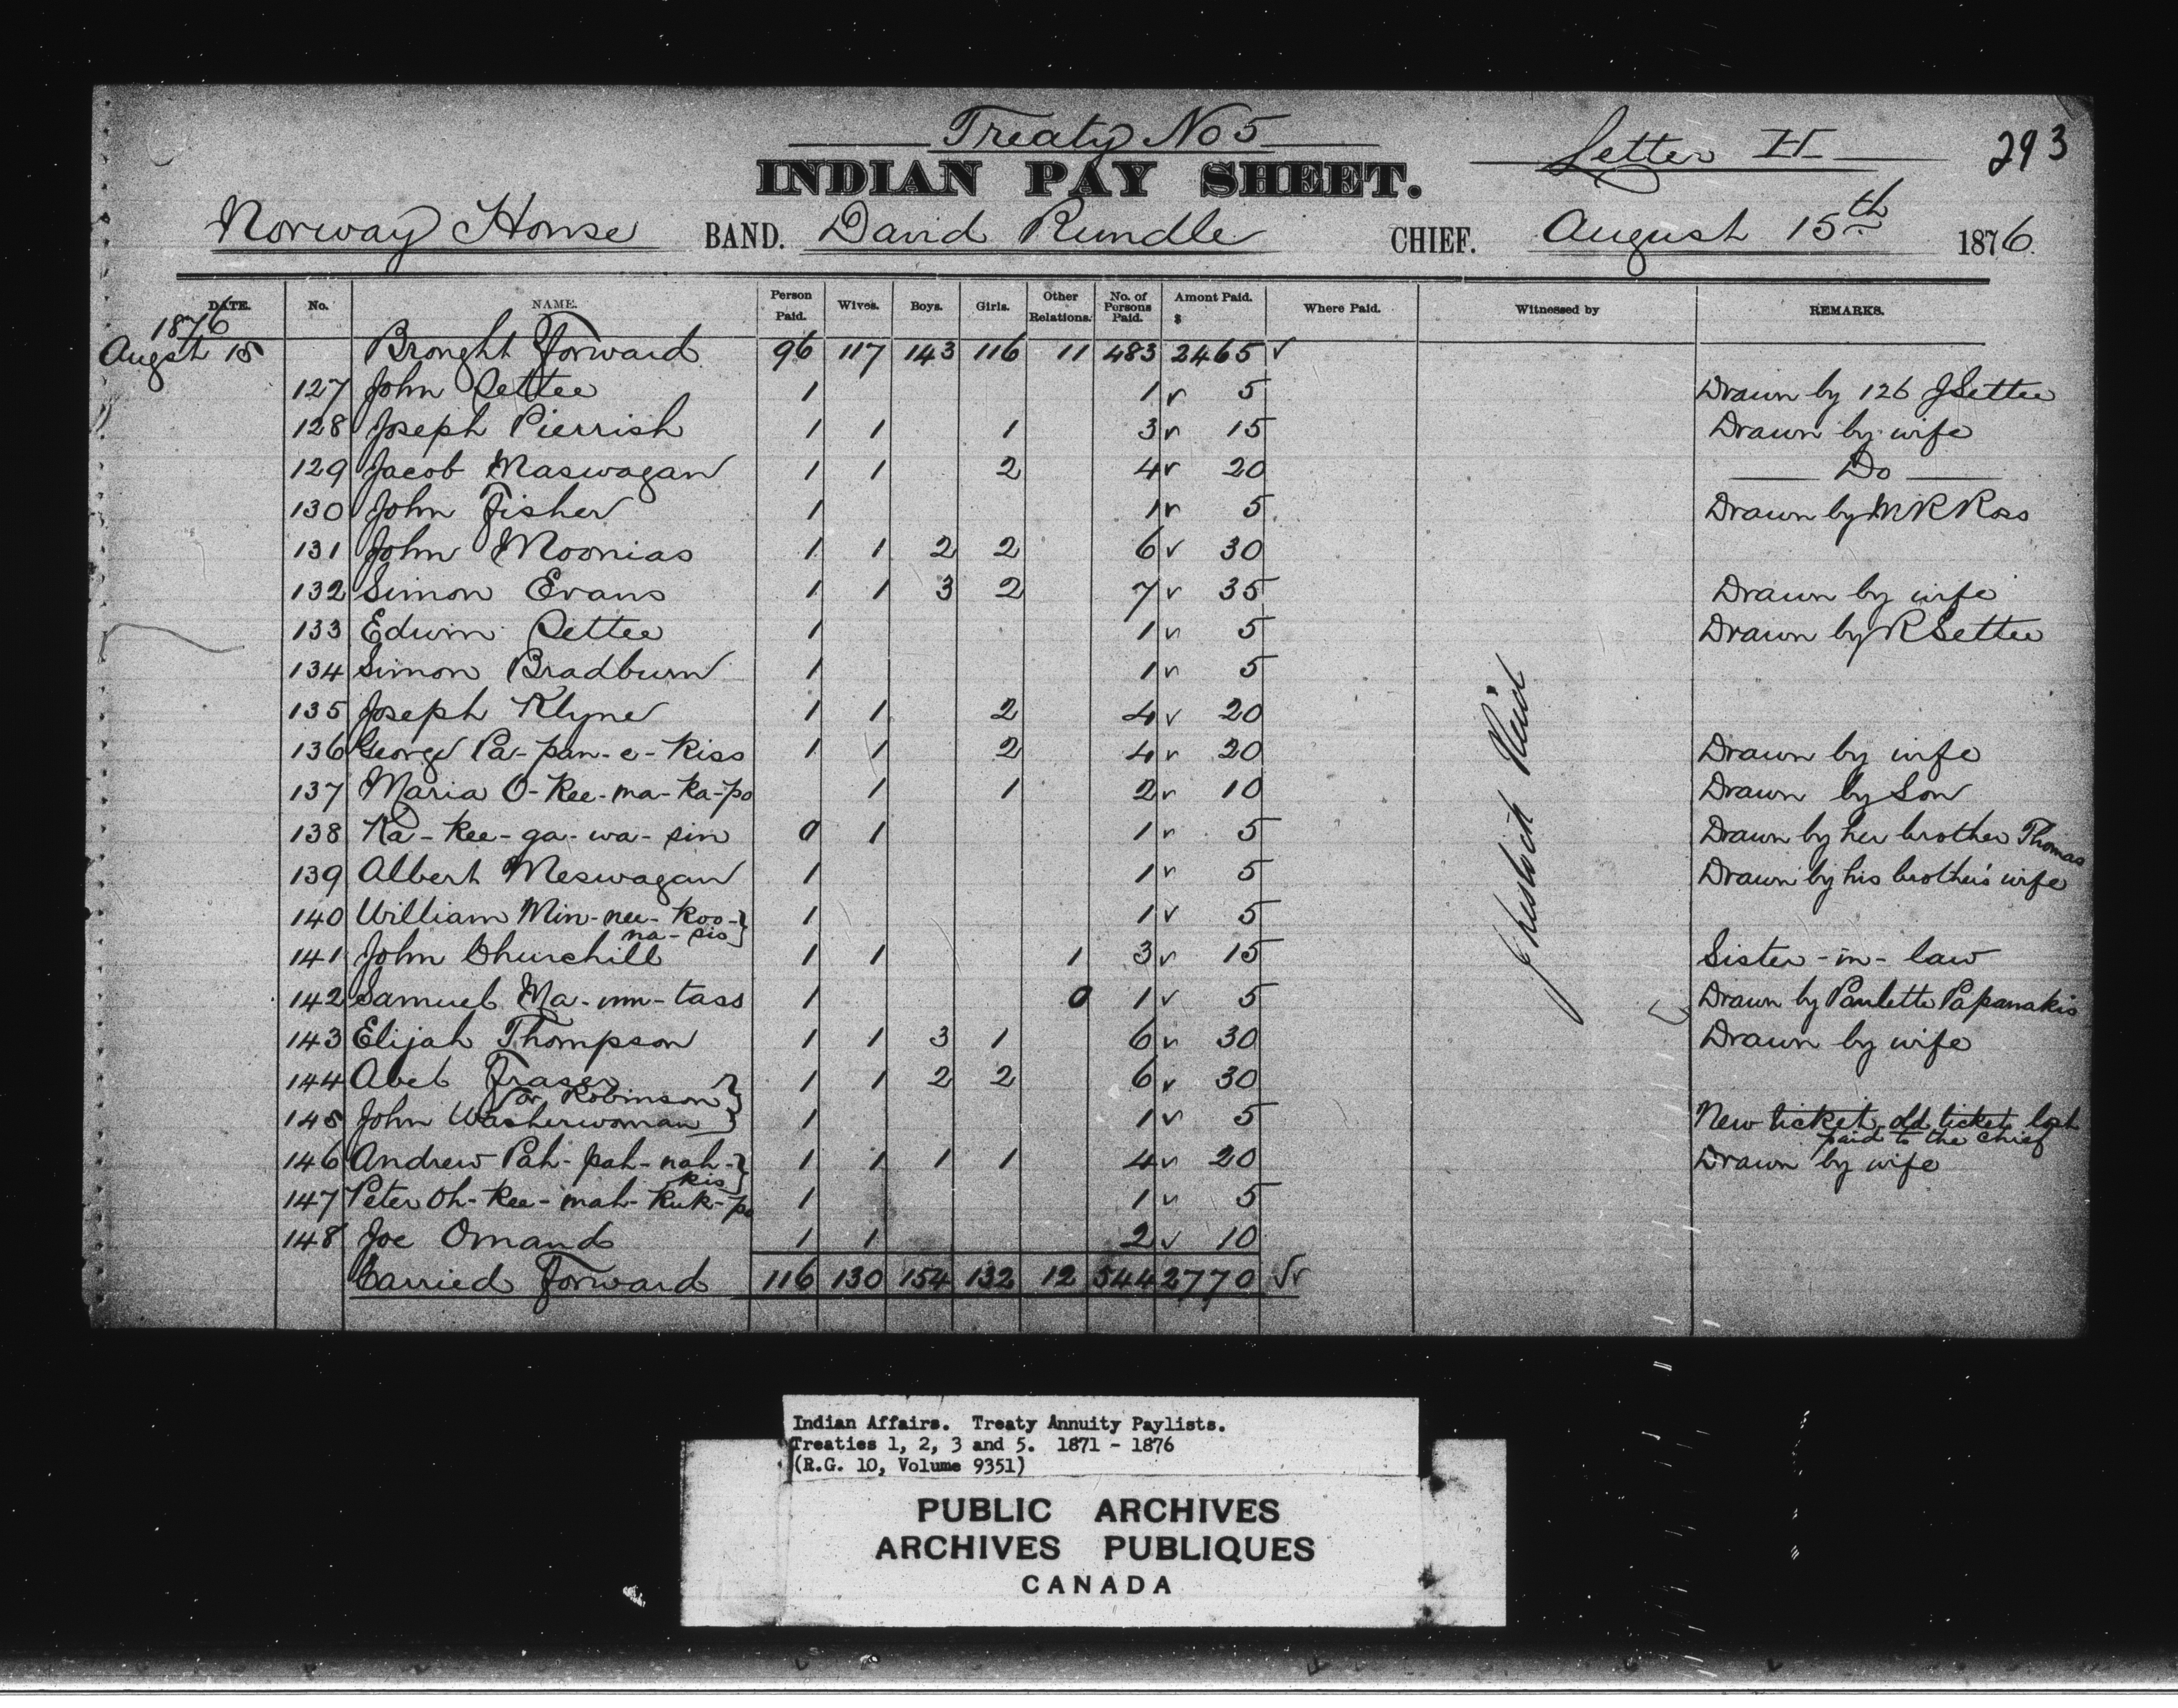 Treaty No 5
Letter H
293
INDIAN PAY SHEET.
Norway House BAND. David Rundle CHIEF. August 15th 1876.
DATE. No. NAME. Person Paid. Wives. Boys. Girls. Other Relations. No. of Persons Paid. Amont Paid. $ Where Paid. Witnessed by REMARKS.
1876
Augst 15 Brought Forward 96 117 143 116 11 483 2465 ✓
127 John Settee 1 1 ✓ 5 Drawn by 126 J Settee
128 Joseph Pierrish 1 1 1 3 ✓ 15 Drawn by wife
129 Jacob Maswagan 1 1 2 4 ✓ 20 Do
130 John Fisher 1 1 ✓ 5 Drawn by M R Ross
131 John Moonias 1 1 2 2 6 ✓ 30
132 Simon Evans 1 1 3 2 7 ✓ 35 Drawn by wife
133 Edwin Settee 1 1 ✓ 5 Drawn by R Settee
134 Simon Bradburn 1 1 ✓ 5
135 Joseph Klyne 1 1 2 4 ✓ 20
136 George Pa-pan-e-Kiss 1 1 2 4 ✓ 20 Drawn by wife
137 Maria O-Kee-ma-Ka-po 1 1 2 ✓ 10 Drawn by Son
138 Ka-Kee-ga-wa-sin 0 1 1 ✓ 5 Drawn by her brother Thomas
139 Albert Meswagan 1 1 ✓ 5 Drawn by his brother's wife
140 William Min-nee-Koo-} 1 1 ✓ 5
na-sis}
141 John Churchill 1 1 1 3 ✓ 15 Sister-in-law
142 Samuel Ma-mm-tass 1 0 1 ✓ 5 Drawn by Paulette Papanakis
143 Elijah Thompson 1 1 3 1 6 ✓ 30 Drawn by wife
144 Abel Fraser 1 1 2 2 6 ✓ 30
or Robinson }
145 John Washerwoman } 1 1 ✓ 5 New ticket, old ticket lost
paid to the chief
146 Andrew Pah-pah-nah-} 1 1 1 1 4 ✓ 20 Drawn by wife
kis}
147 Peter Oh-Kee-mah-Kuk-po 1 1 ✓ 5
148 Joe Omand 1 1 2 ✓ 10
Carried Forward 116 130 154 132 12 544 2770 ✓✓
Reid
Indian Affairs. Treaty Annuity Paylists.
Treaties 1, 2, 3 and 5. 1871 - 1876
(R.G. 10, Volume 9351)
PUBLIC ARCHIVES
ARCHIVES PUBLIQUES
CANADA